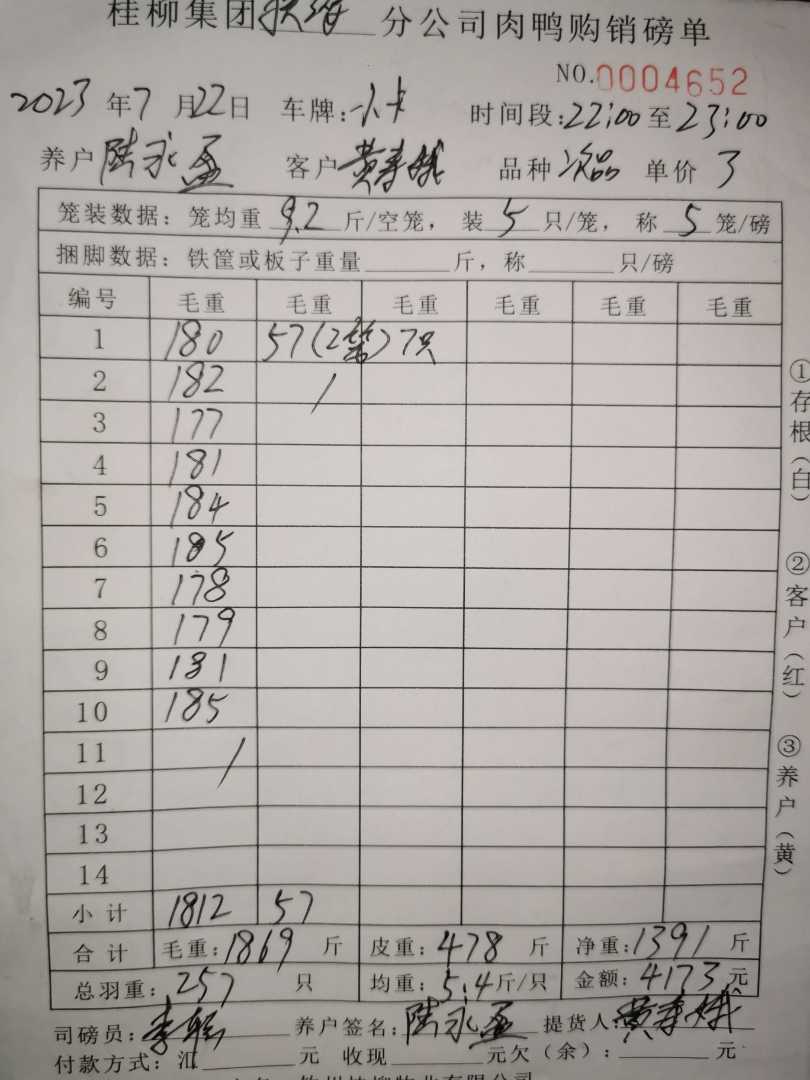 桂柳集团 分公司肉鸭购销磅单
NO.0004652
2023年7月22日 车牌:小卡 时间段:22:00至23:00
养户 陆永孟 客户 黄寿娥 品种 次品 单价 3
笼装数据:笼均重 9.2 斤/空笼,装 5 只/笼,称 5 笼/磅
捆脚数据:铁筐或板子重量 斤,称 只/磅
编号 毛重 毛重 毛重 毛重 毛重 毛重
1 180 57(2笼)7只
2 182 /
3 177
4 181
5 184
6 185
7 178
8 179
9 181
10 185
11 /
12
13
14
小计 1812 57
合计 毛重:1869 斤 皮重:478 斤 净重:1391 斤
总羽重:257 只 均重:5.4斤/只 金额:4173元
司磅员: 养户签名:陆永孟 提货人:黄寿娥
付款方式:汇 元 收现 元欠(余): 元
①存根(白)
②客户(红)
③养户(黄)